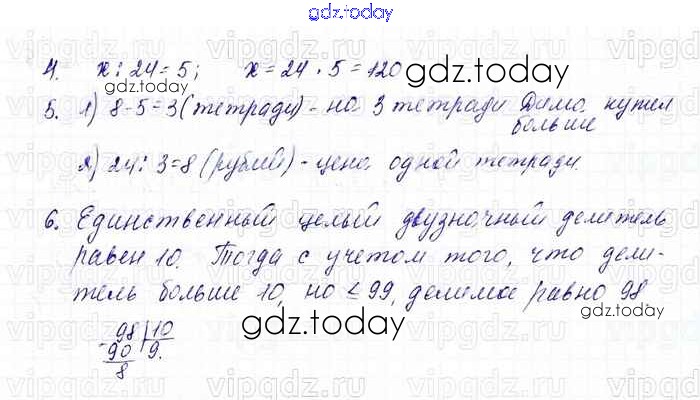 gdz.today
4. x : 24 = 5; x = 24 · 5 = 120
gdz.today
gdz.today
5. 1) 8 - 5 = 3 (тетради) - на 3 тетради Дима купил
больше
2) 24 : 3 = 8 (рублей) - цена одной тетради.
6. Единственный целый двузночный делитель
равен 10. Тогда с учетом того, что дели-
тель больше 10, но ≤ 99, делимое равно 98.
gdz.today
gdz.today
- 98 | 10
90 | 9.
8